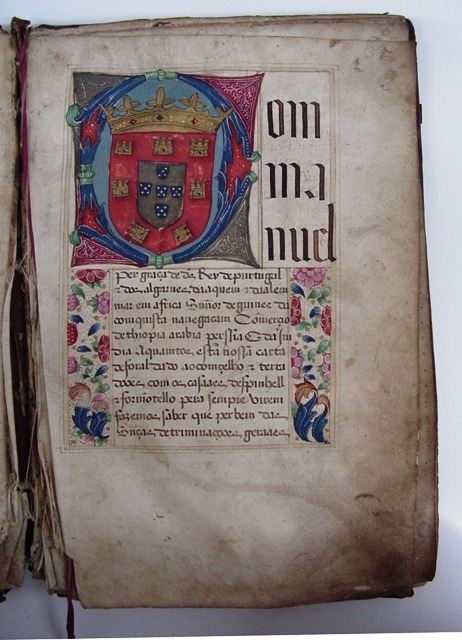 Dom
ma
nuel
per graça de ds Rey de purtugal
e dos algarues daaquem e daalem
mar em africa Siñor de guinee e da
comquista navegacam Comerçio
dethiopia arabia persia E da jn
dia Aquamtos esta nossa carta
de foral dado ao comçelho e terra
com os casaaes
pera sempre virem
fazemos saber que per bem das
Semças detriminaçooes geraaes